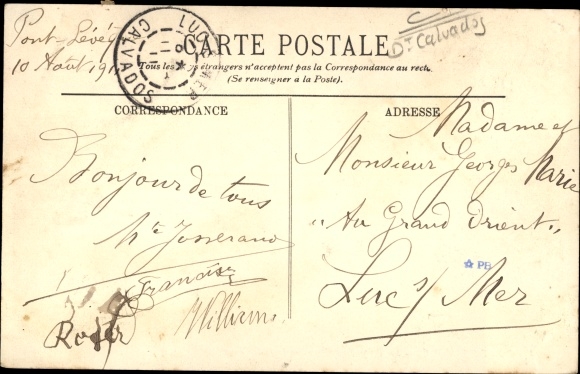 Pont-Lévê
10 Août 191
CARTE POSTALE
Dt Calvados
LUC S MER
CALVADOS
Tous les Pays étrangers n'acceptent pas la Correspondance au recto
(Se renseigner à la Poste).
CORRESPONDANCE
Bonjour de tous
Mte Josserand
Francise
Roger
Williems
ADRESSE
Madame et
Monsieur Georges Marie
"Au Grand Orient"
Luc s/ Mer
PB